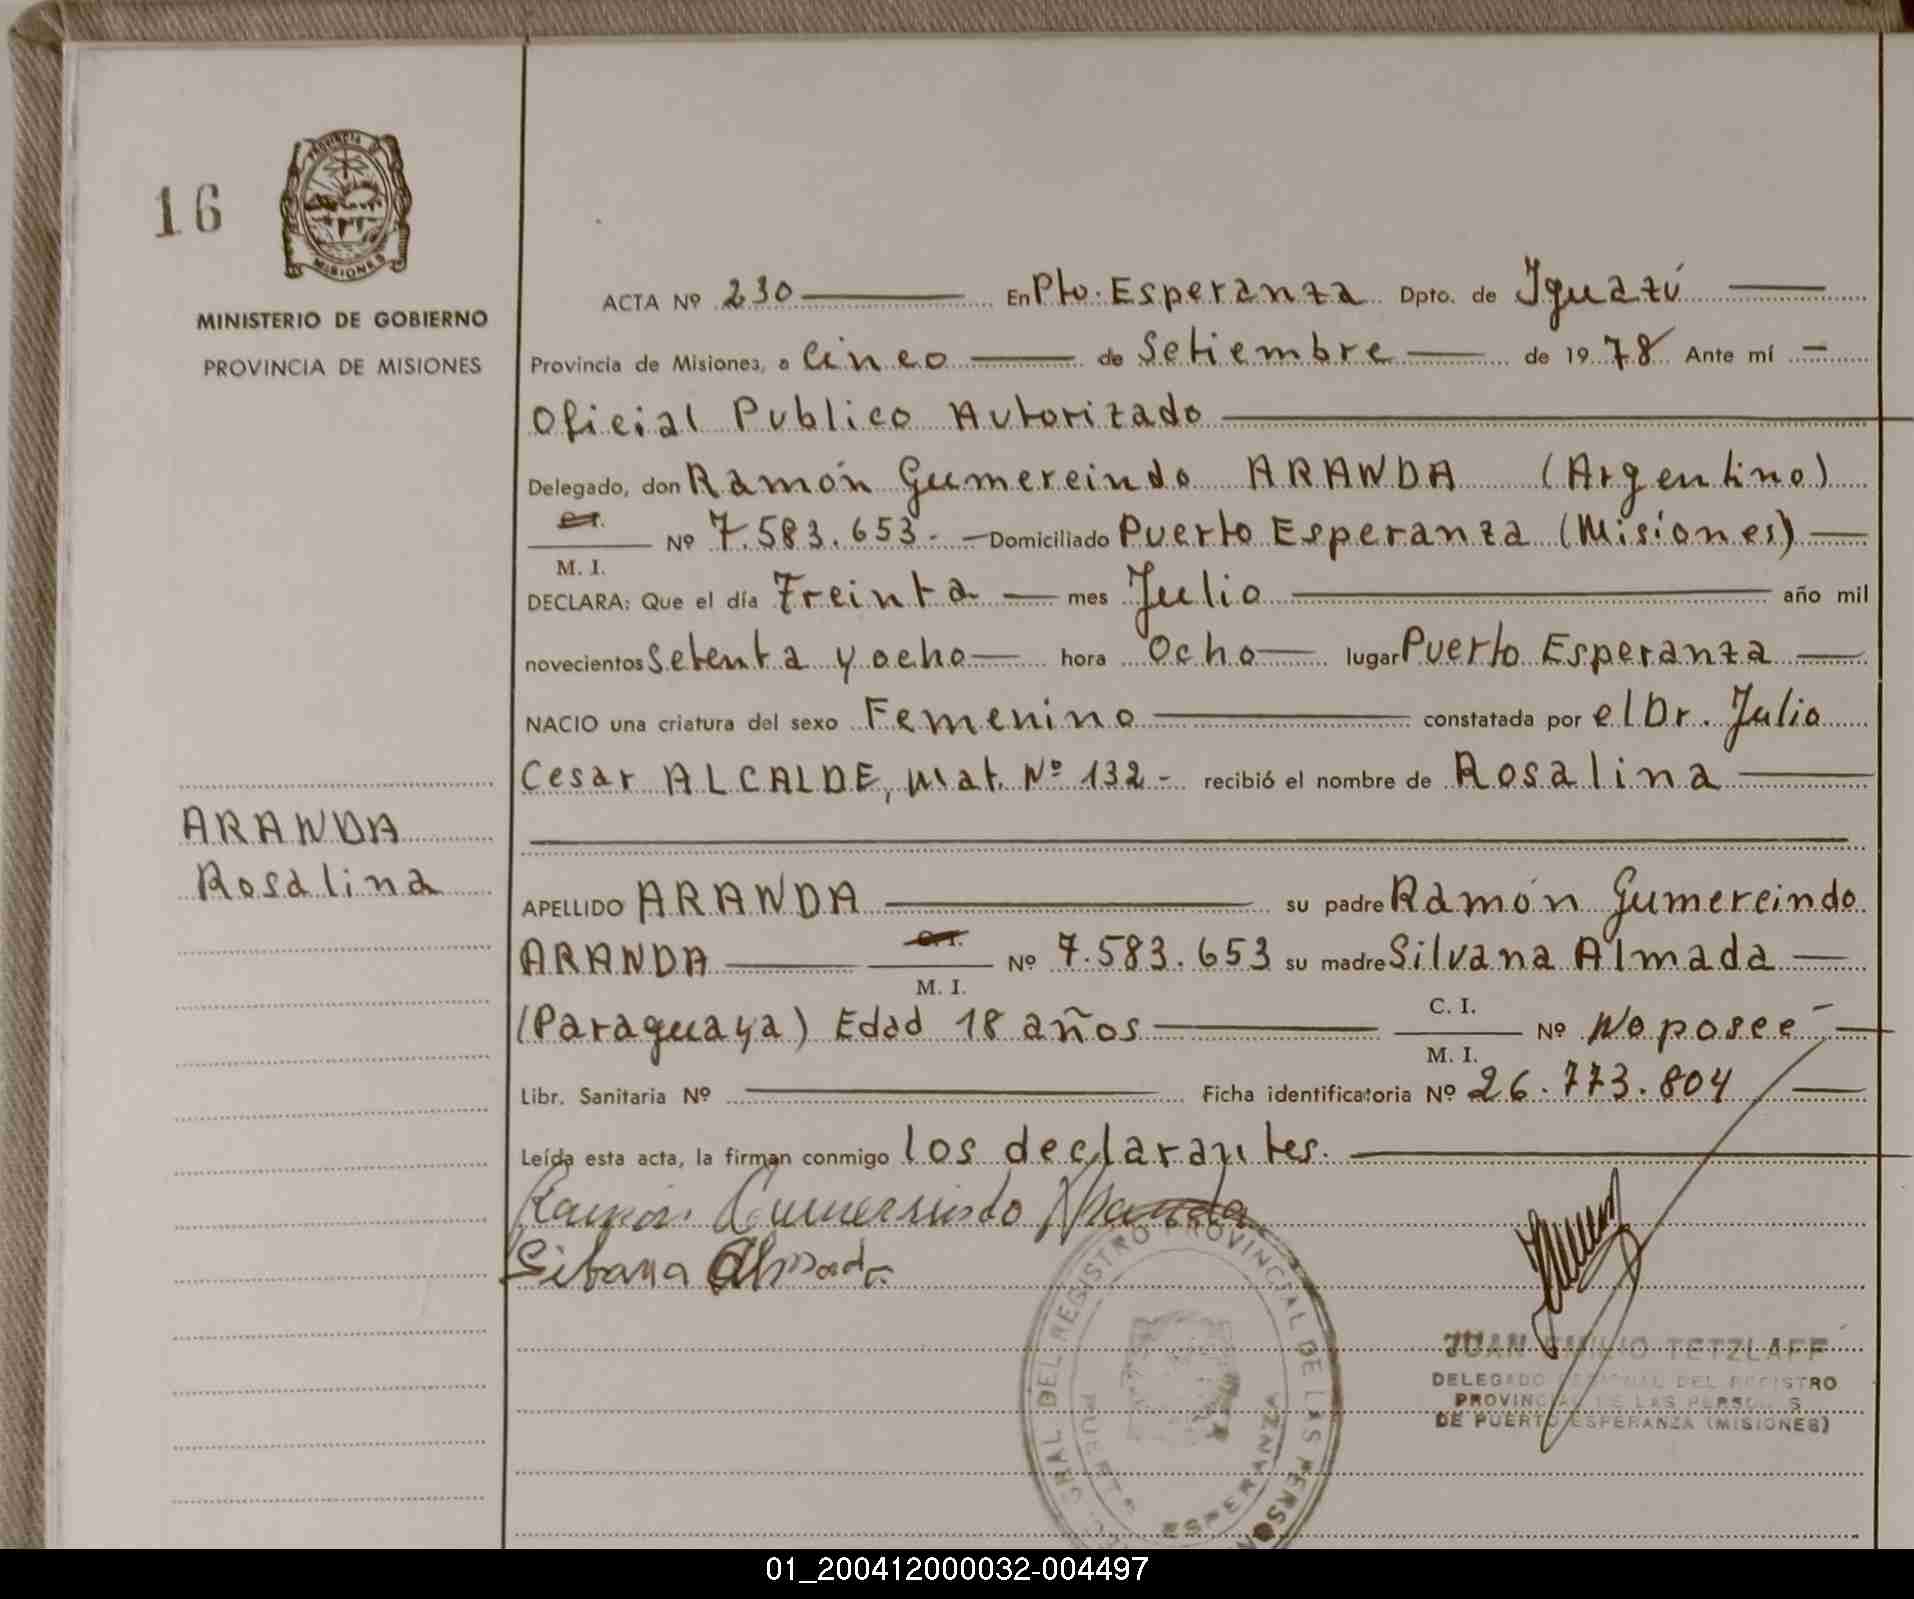 16
PROVINCIA DE
MISIONES
MINISTERIO DE GOBIERNO
PROVINCIA DE MISIONES
ARANDA
Rosalina
ACTA Nº 230 En Pto. Esperanza Dpto. de Iguazú
Provincia de Misiones, a Cinco de Setiembre de 1978 Ante mí
Oficial Publico Autorizado
Delegado, don Ramón Gumercindo ARANDA (Argentino)
C. I.
Nº 7.583.653.- Domiciliado Puerto Esperanza (Misiones)
M. I.
DECLARA: Que el día Treinta mes Julio año mil
novecientos Setenta y ocho hora Ocho lugar Puerto Esperanza
NACIO una criatura del sexo Femenino constatada por el Dr. Julio
Cesar ALCALDE, Mat. Nº 132- recibió el nombre de Rosalina
APELLIDO ARANDA su padre Ramón Gumercindo
C. I.
ARANDA Nº 7.583.653 su madre Silvana Almada
M. I.
C. I.
(Paraguaya) Edad 18 años Nº No posee
M. I.
Libr. Sanitaria Nº Ficha identificatoria Nº 26.773.804
Leída esta acta, la firman conmigo los declarantes.
Ramón Gumersindo Aranda
Silbana Almada
DEL REGISTRO PROVINCIAL DE LAS PERSON
PUERTO ESPERANZA
JUAN EMILIO TETZLAFF
DELEGADO REGIONAL DEL REGISTRO
PROVINCIAL DE LAS PERSONAS
DE PUERTO ESPERANZA (MISIONES)
01_200412000032-004497